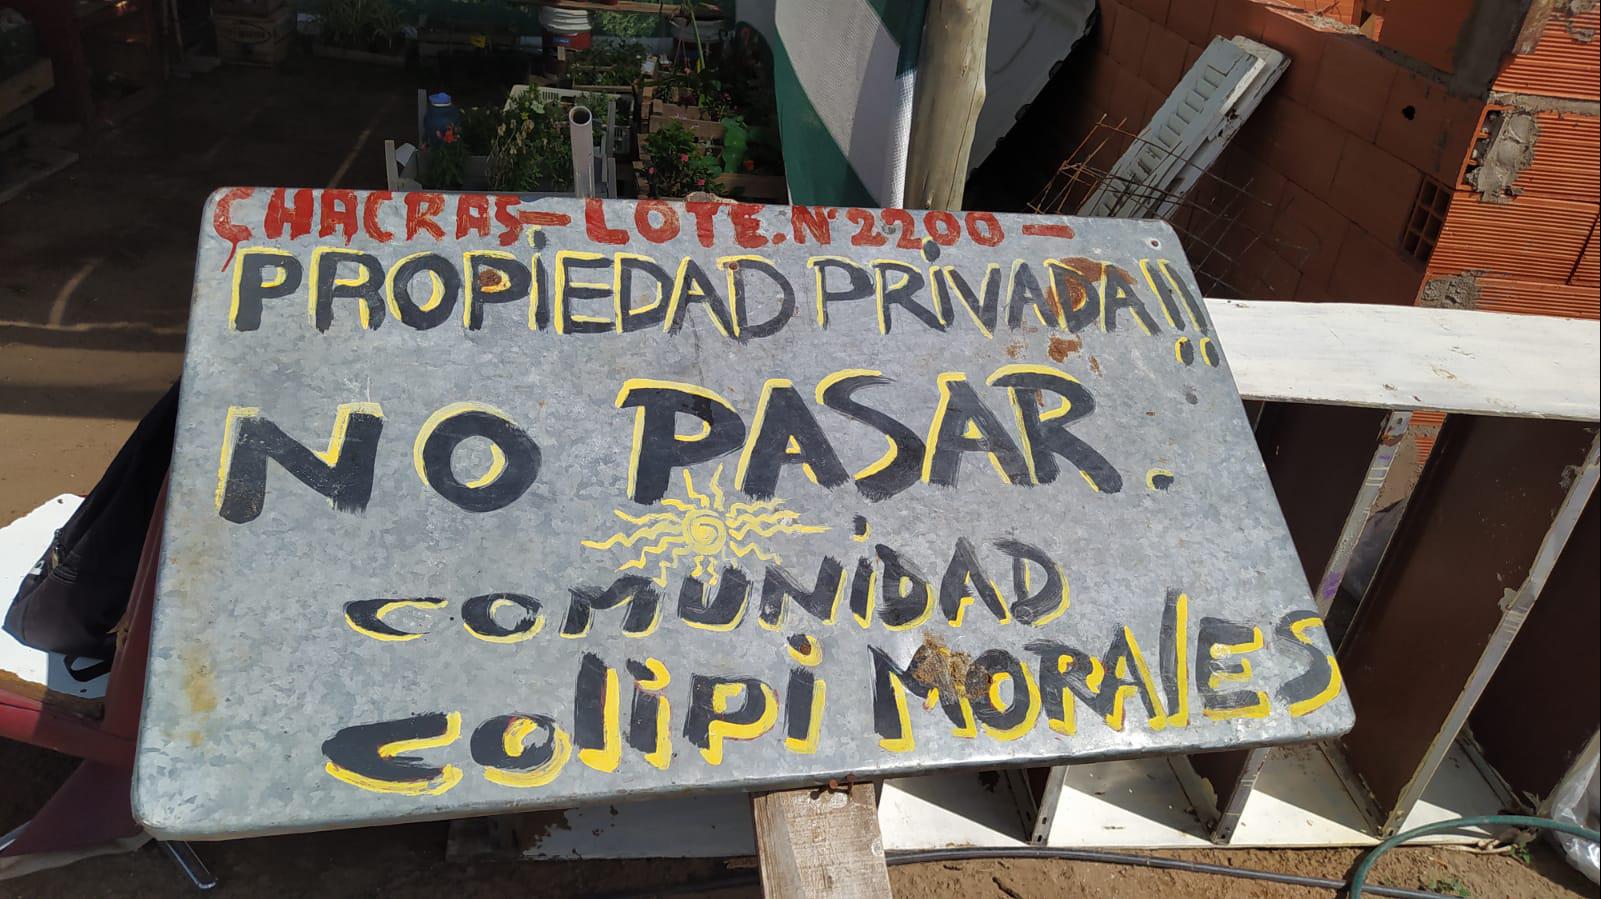 CHACRAS-LOTE.N°2200-
PROPiEDAD PRiVADA!!
NO PASAR.
COMUNiDAD
COliPi MORAlES